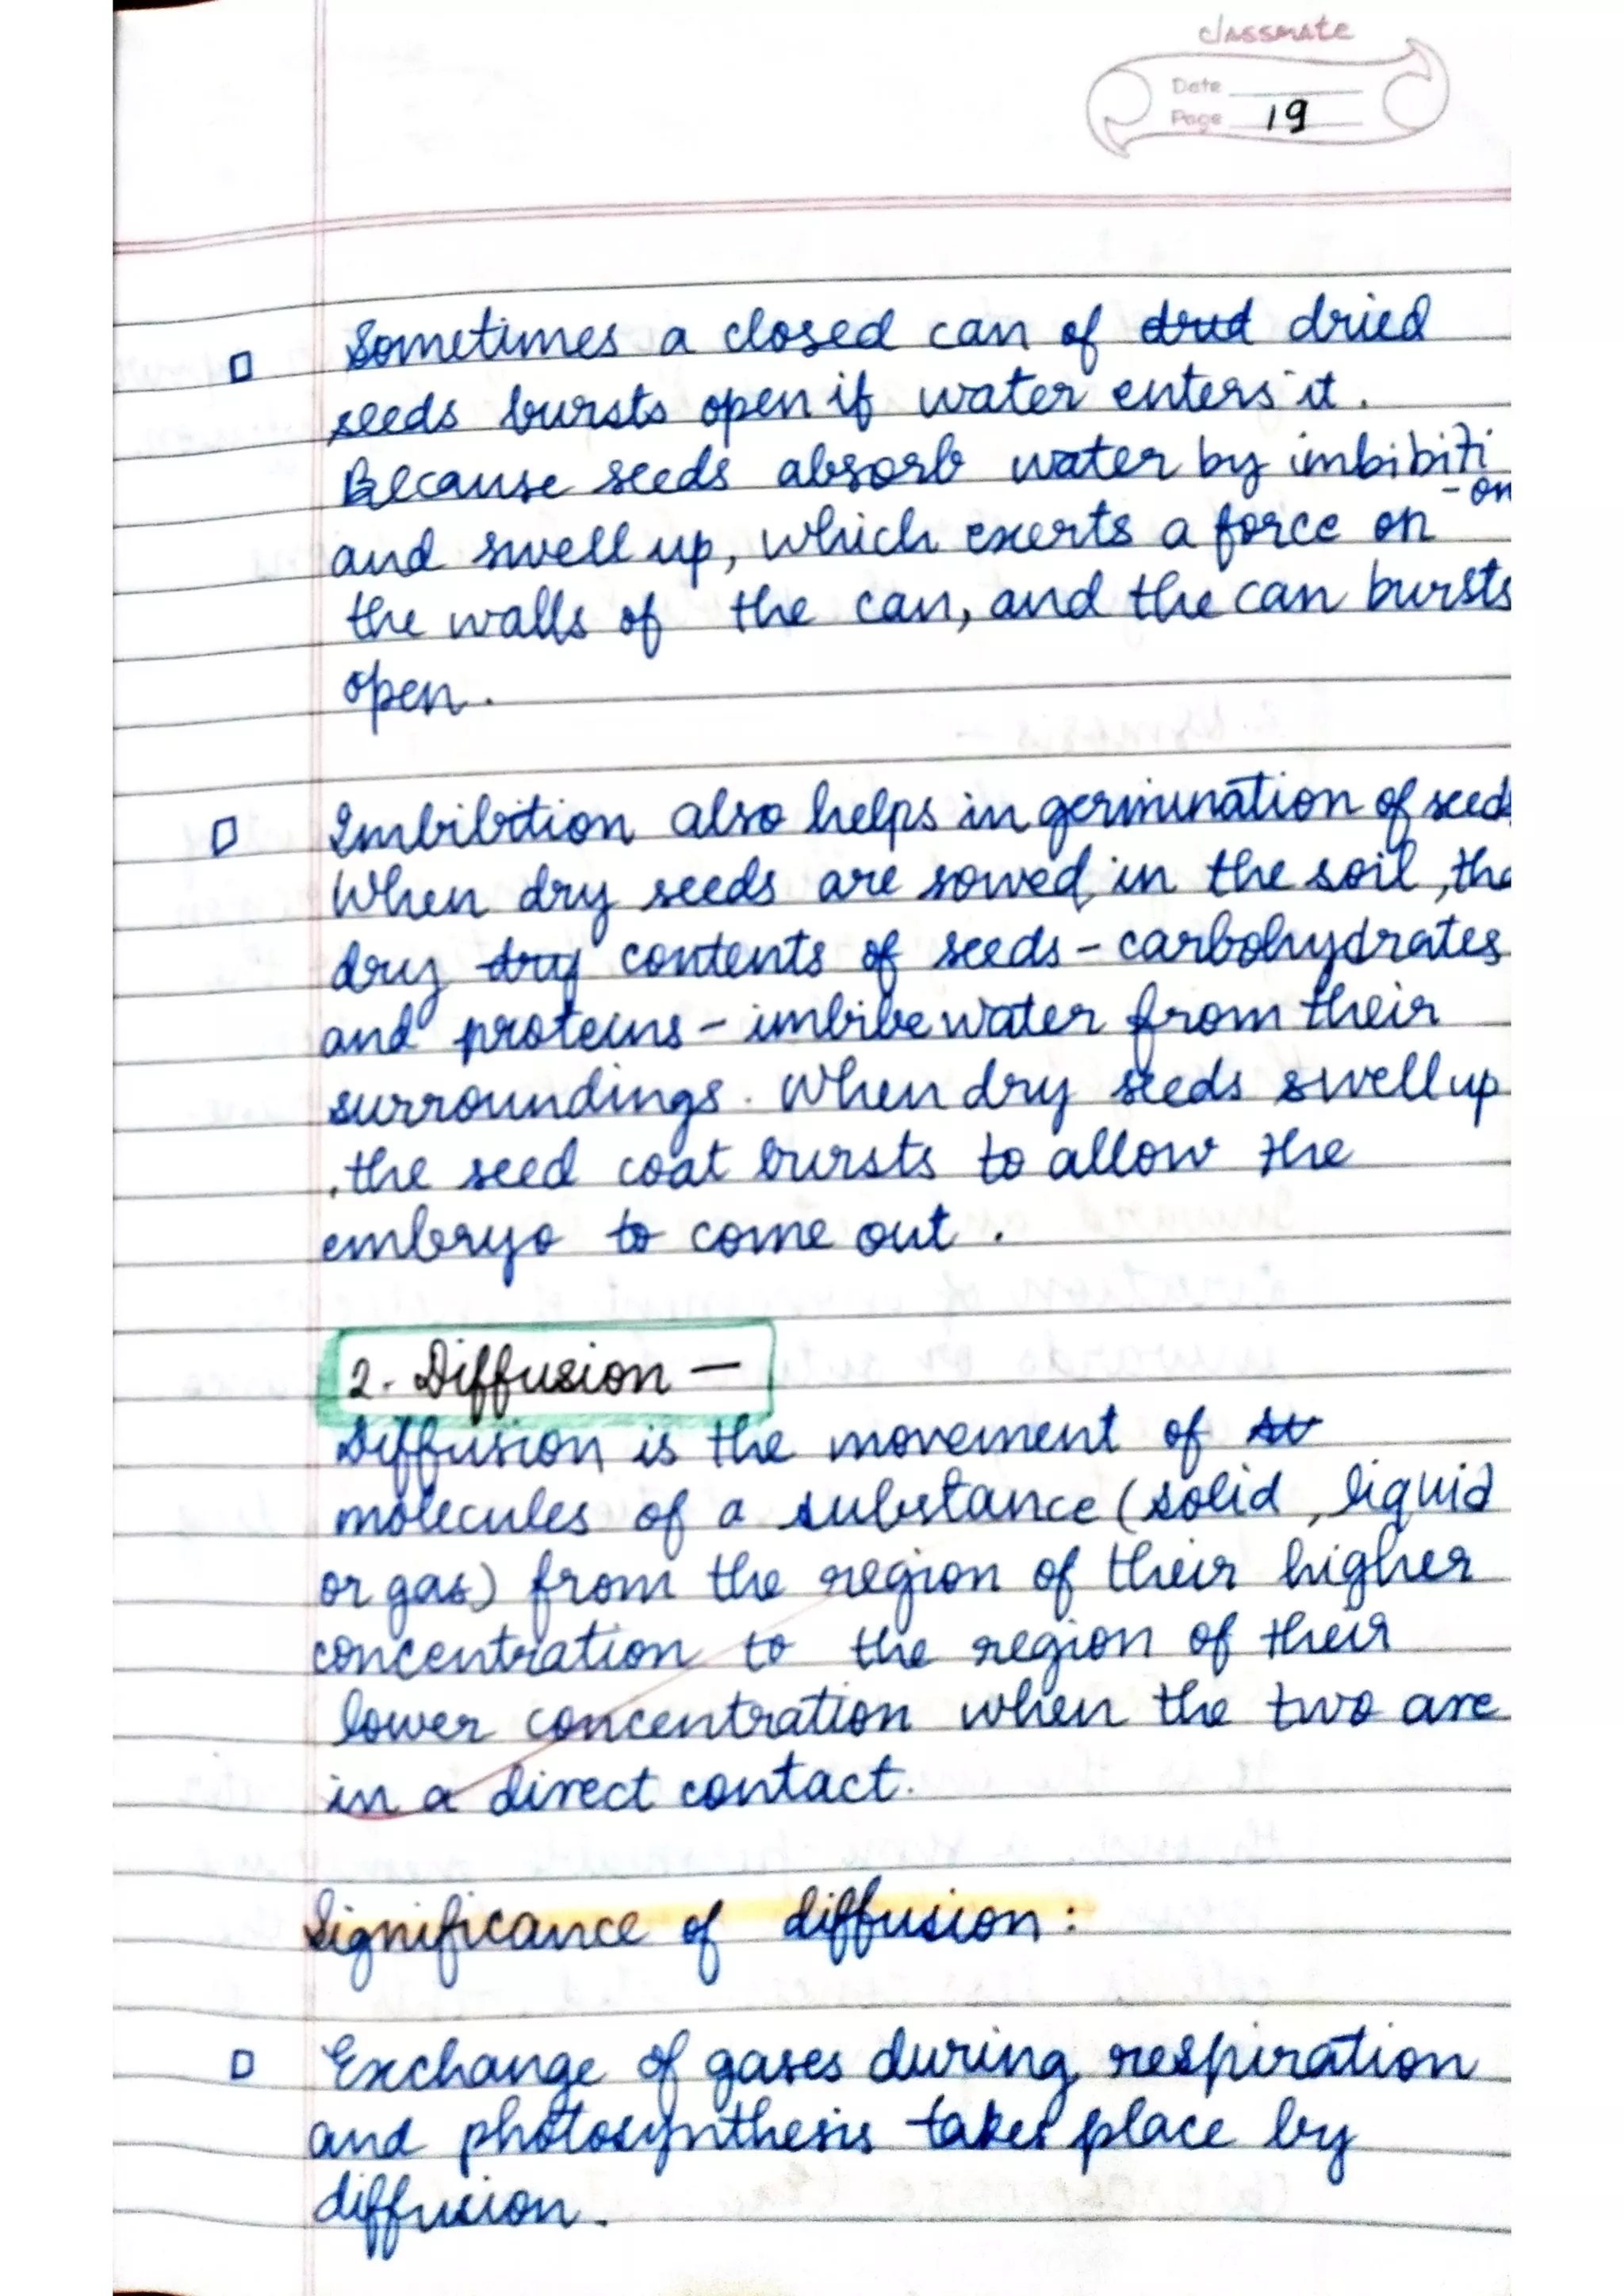 classmate
Date
Page 19
Sometimes a closed can of dried
seeds bursts open if water enters it.
Because seeds absorb water by imbibiti
-on
and swell up, which exerts a force on
the walls of the can, and the can bursts
open.
Imbibition also helps in germination of seeds
When dry seeds are sowed in the soil, the
dry dry contents of seeds - carbohydrates
and proteins - imbibe water from their
surroundings. When dry seeds swell up
, the seed coat bursts to allow the
embryo to come out.
2. Diffusion —
Diffusion is the movement of su
molecules of a substance (solid, liquid
or gas) from the region of their higher
concentration to the region of their
lower concentration when the two are
in a direct contact.
Significance of diffusion:
Exchange of gases during respiration
and photosynthesis takes place by
diffusion.